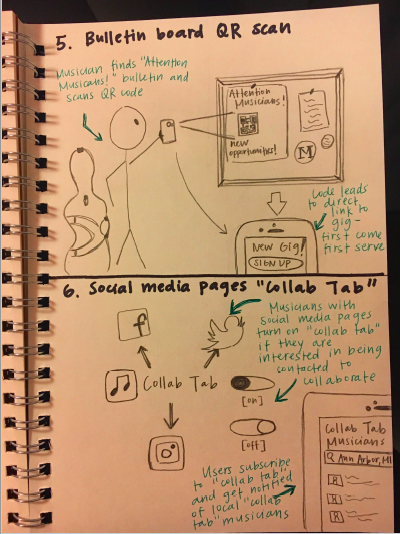 5. Bulletin board QR scan
Musician finds "Attention
Musicans!" bulletin and
scans QR code
Attention
Musicians!
new
opportunities!
M
Code leads
to direct
link to
gig -
first come
first serve
New Gig!
SIGN UP
6. Social media pages "Collab Tab"
f
Musicians with
social media pages
turn on "collab tab"
if they are
interested in being
contacted to
collaborate
Collab Tab
[on]
[off]
Users subscribe
to "collab tab"
and get notified
of local "collab
tab" musicians
Collab Tab
Musicians
Ann Arbor, MI